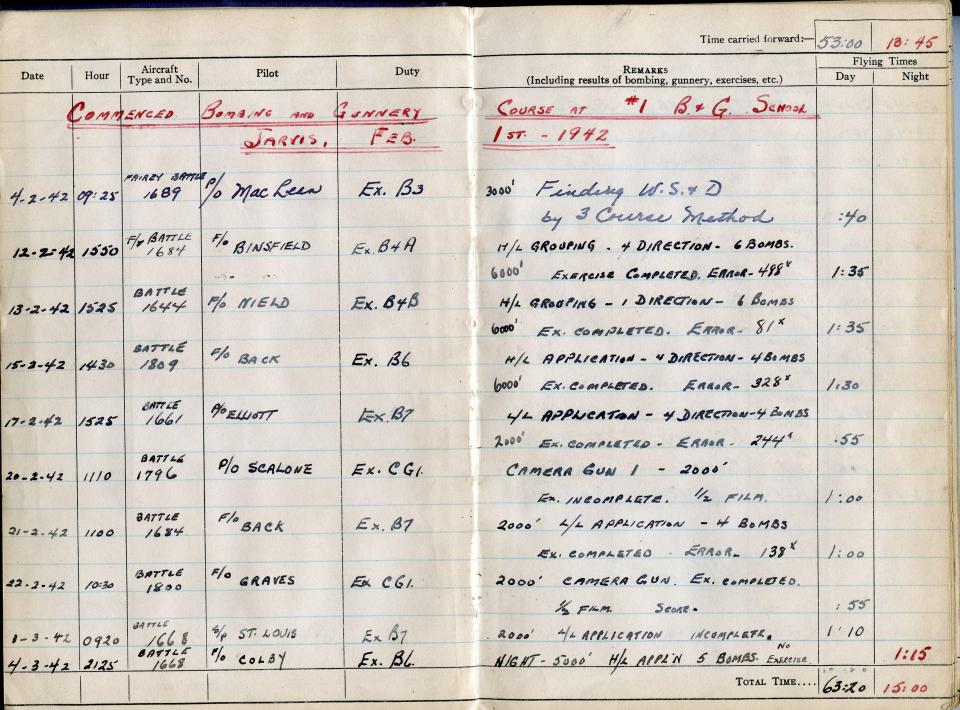 Time carried forward:— 53:00 13:45
Date Hour Aircraft Type and No. Pilot Duty REMARKS (Including results of bombing, gunnery, exercises, etc.) Flying Times Day Night
COMMENCED BOMBING AND GUNNERY COURSE AT #1 B & G. SCHOOL
JARVIS, FEB. 1ST. - 1942
4-2-42 09:25 FAIREY BATTLE 1689 P/O MacLean Ex. B3 3000' Finding W.S. & D
by 3 Course Method :40
12-2-42 1550 F/y BATTLE 1684 F/O BINSFIELD Ex. B4A H/L GROUPING - 4 DIRECTION - 6 BOMBS.
6000' EXERCISE COMPLETED. ERROR - 498x 1:35
13-2-42 1525 BATTLE 1644 F/O NIELD Ex. B4B H/L GROUPING - 1 DIRECTION - 6 BOMBS
6000' EX. COMPLETED. ERROR - 81x 1:35
15-2-42 1430 BATTLE 1809 F/O BACK Ex. B6 H/L APPLICATION - 4 DIRECTION - 4 BOMBS
6000' EX. COMPLETED. ERROR - 328x 1:30
17-2-42 1525 BATTLE 1661 P/O ELLIOTT Ex. B7 L/L APPLICATION - 4 DIRECTION - 4 BOMBS
2000' EX. COMPLETED - ERROR - 244x .55
20-2-42 1110 BATTLE 1796 P/O SCALONE Ex. CG1. CAMERA GUN 1 - 2000'
EX. INCOMPLETE. 1/2 FILM. 1:00
21-2-42 1100 BATTLE 1684 F/O BACK Ex. B7 2000' L/L APPLICATION - 4 BOMBS
EX. COMPLETED ERROR - 138x 1:00
22-2-42 10:30 BATTLE 1800 F/O GRAVES Ex CG1. 2000' CAMERA GUN. EX. COMPLETED.
FILM SCORE - :55
1-3-42 0920 BATTLE 1668 S/P ST. LOUIS Ex B7 2000' L/L APPLICATION INCOMPLETE. 1:10
4-3-42 2125 BATTLE 1668 F/O COLBY Ex. B6. NIGHT - 5000' H/L APPL'N 5 BOMBS. NO EXERCISE 1:15
TOTAL TIME.... 63:20 15:00